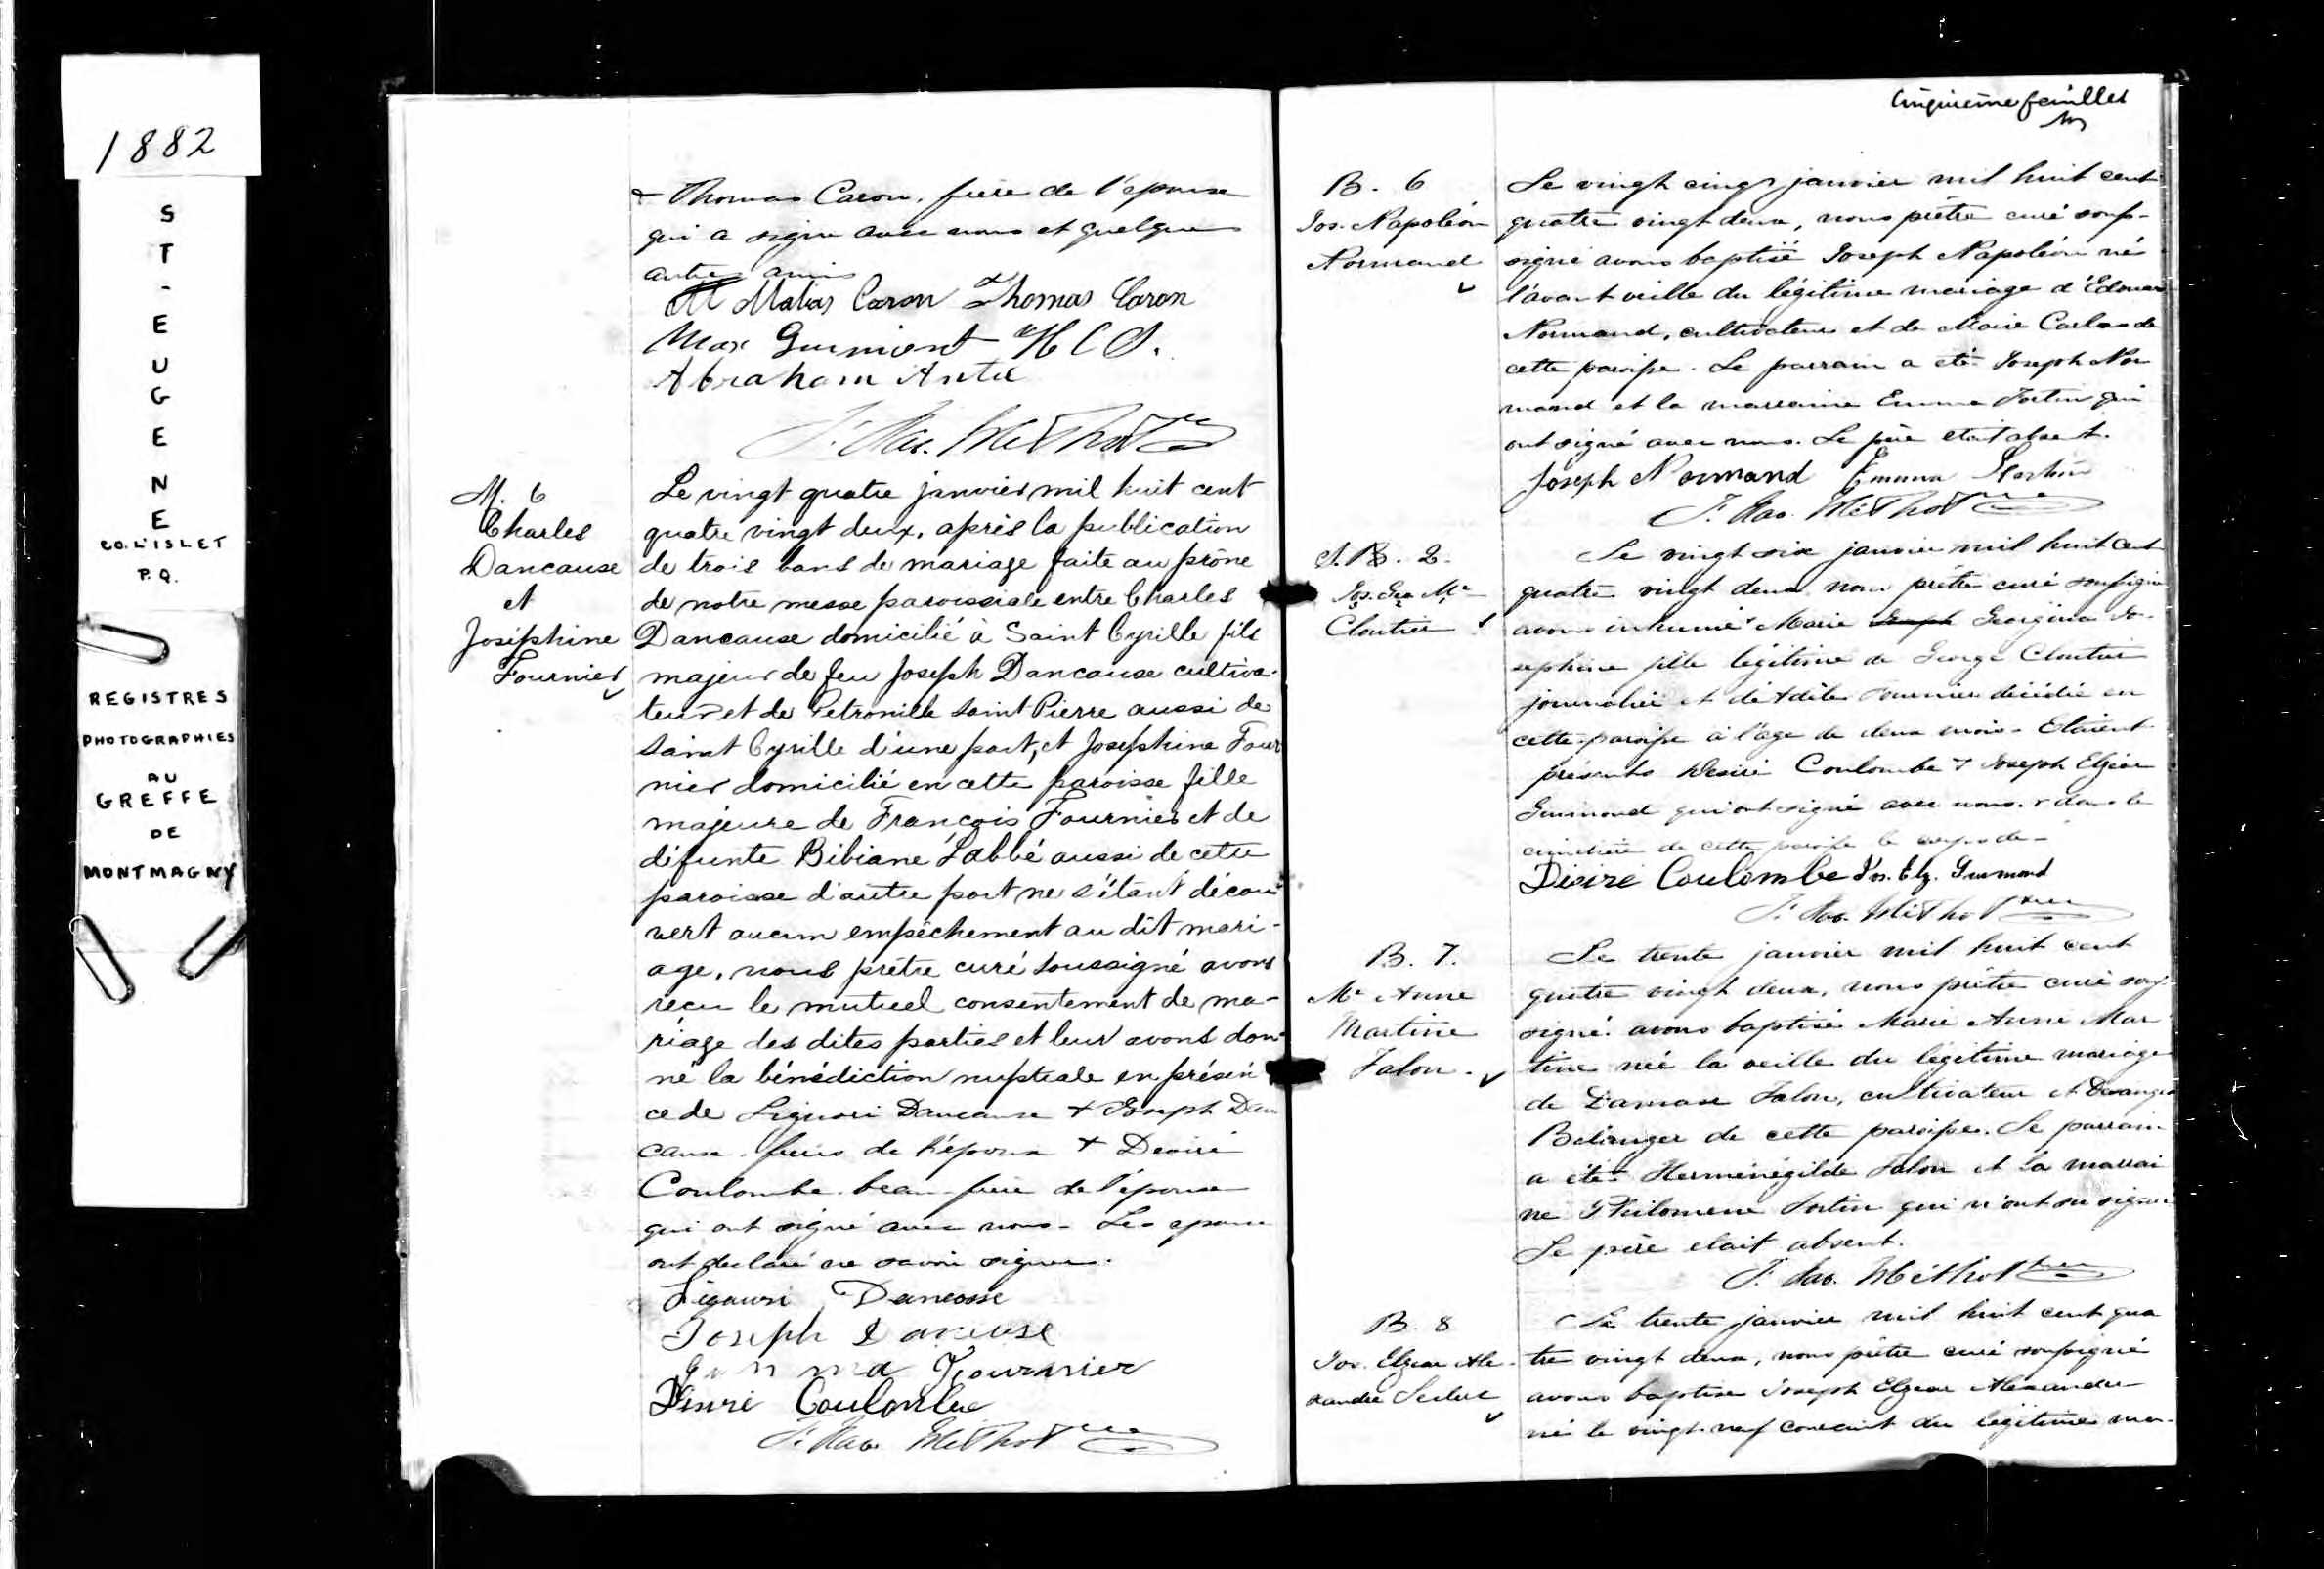 1882
S
T
-
E
U
G
E
N
E
CO. L'ISLET
P.Q.
REGISTRES
PHOTOGRAPHIES
AU
GREFFE
DE
MONTMAGNY
& Thomas Caron, frère de l'epouse
qui a signé avec nous et quelques
autres amis
Matias Caron Thomas Caron
Max Guimont
Abraham
F. Méthot
M. 6
Charles
Dancause
et
Joséphine
Fournier
Le vingt quatre janvier mil huit cent
quatre vingt deux, après la publication
de trois bans de mariage faite au prône
de notre messe paroissiale entre Charles
Dancause domicilié à Saint Cyrille fils
majeur de feu Joseph Dancause cultiva-
teur et de Petronille Saint Pierre aussi de
Saint Cyrille d'une part, et Josephine Four
nier domicilié en cette paroisse fille
majeure de François Fournier et de
défunte Bibiane Labbé aussi de cette
paroisse d'autre part ne s'étant décou
vert aucun empêchement au dit mari-
age, nous prêtre curé soussigné avons
recu le mutuel consentement de ma-
riage des dites parties et leur avons don-
né la bénédiction nuptiale en présen
ce de Liguori Dancause & Joseph Dan
cause frères de l'époux & Desiré
Coulombe beau-frère de l'épouse
qui ont signé avec nous. Les epoux
ont declaré ne savoir signer.
Ligauri Dancosse
Joseph Dancuse
Fournier
Desiré Coulombe
F. Méthot
Cinquième feuillet
B. 6
Jos. Napoléon
Normand
Le vingt cinq janvier mil huit cent
quatre vingt deux, nous prêtre curé sous-
signé avons baptisé Joseph Napoléon né
l'avant veille du légitime mariage d'Edouard
Normand, cultivateur et de Marie Carlos de
cette paroisse. Le parrain a été Joseph Nor
mand et la marraine Emma Fortin qui
ont signé avec nous. Le père etait absent.
Joseph Normand Emma Fortin
F. Méthot
S.B. 2.
Jos. Geo Me
Cloutier
Le vingt six janvier mil huit cent
quatre vingt deux nous prêtre curé soussigné
avons inhumé Marie Joseph Georgina Jo-
sephine fille légitime de George Cloutier
journalier et de Adèle Fournier décédée en
cette paroisse à l'age de deux mois. Etaient
présents Desiré Coulombe & Joseph Elzéar
Guimond qui ont signé avec nous. & dans le
cimetière de cette paroisse le corps de-
Désiré Coulombe Jos. Elz. Guimond
F. Méthot
B. 7.
Me Anne
Martine
Talon.
Le trente janvier mil huit cent
quatre vingt deux, nous prêtre curé sous-
signé avons baptisé Marie Anne Mar
tine née la veille du légitime mariage
de Damase Talon, cultivateur et Desanges
Bélanger de cette paroisse. Le parrain
a été Herménégilde Talon et la marrai
ne Philomene Fortin qui n'ont su signer
Le père etait absent.
F. Méthot
B. 8
Jos. Elzear Ale-
xandre Leclerc
Le trente janvier mil huit cent qua
tre vingt deux, nous prêtre curé soussigné
avons baptisé Joseph Elzear Alexandre
né le vingt-neuf courant du légitime ma-